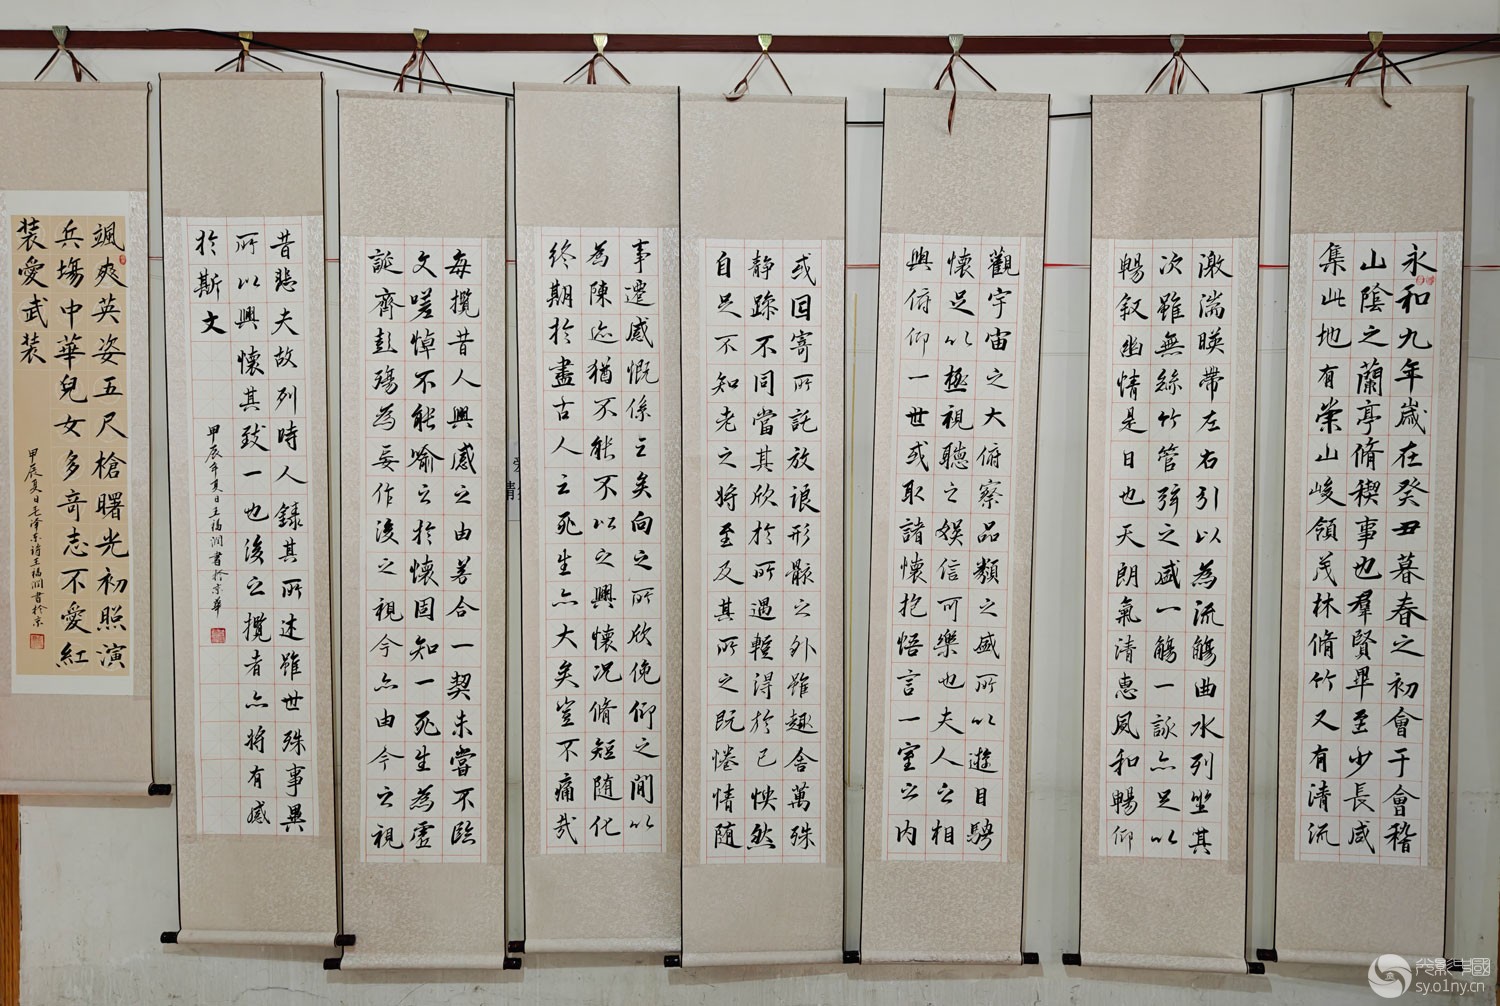 永和九年歲在癸丑暮春之初會于會稽
山陰之蘭亭脩稧事也羣賢畢至少長咸
集此地有崇山峻領茂林脩竹又有清流
激湍暎帶左右引以為流觴曲水列坐其
次雖無絲竹管弦之盛一觴一詠亦足以
暢叙幽情是日也天朗氣清惠風和暢仰
觀宇宙之大俯察品類之盛所以遊目騁
懷足以極視聽之娛信可樂也夫人之相
與俯仰一世或取諸懷抱悟言一室之內
或因寄所託放浪形骸之外雖趣舍萬殊
静躁不同當其欣於所遇蹔得於己怏然
自足不知老之將至及其所之既惓情随
事遷感慨係之矣向之所欣俛仰之閒以
為陳迹猶不能不以之興懷況脩短随化
終期於盡古人云死生亦大矣豈不痛哉
每攬昔人興感之由若合一契未嘗不臨
文嗟悼不能喻之於懷固知一死生為虛
誕齊彭殤為妄作後之視今亦由今之視
昔悲夫故列時人錄其所述雖世殊事異
所以興懷其致一也後之攬者亦將有感
於斯文
甲辰年夏日王福潤書於京華
颯爽英姿五尺槍曙光初照演
兵塲中華兒女多奇志不愛紅
裝愛武装
甲辰夏日毛澤東詩王福潤書於京
光影中國
sy.o1ny.cn